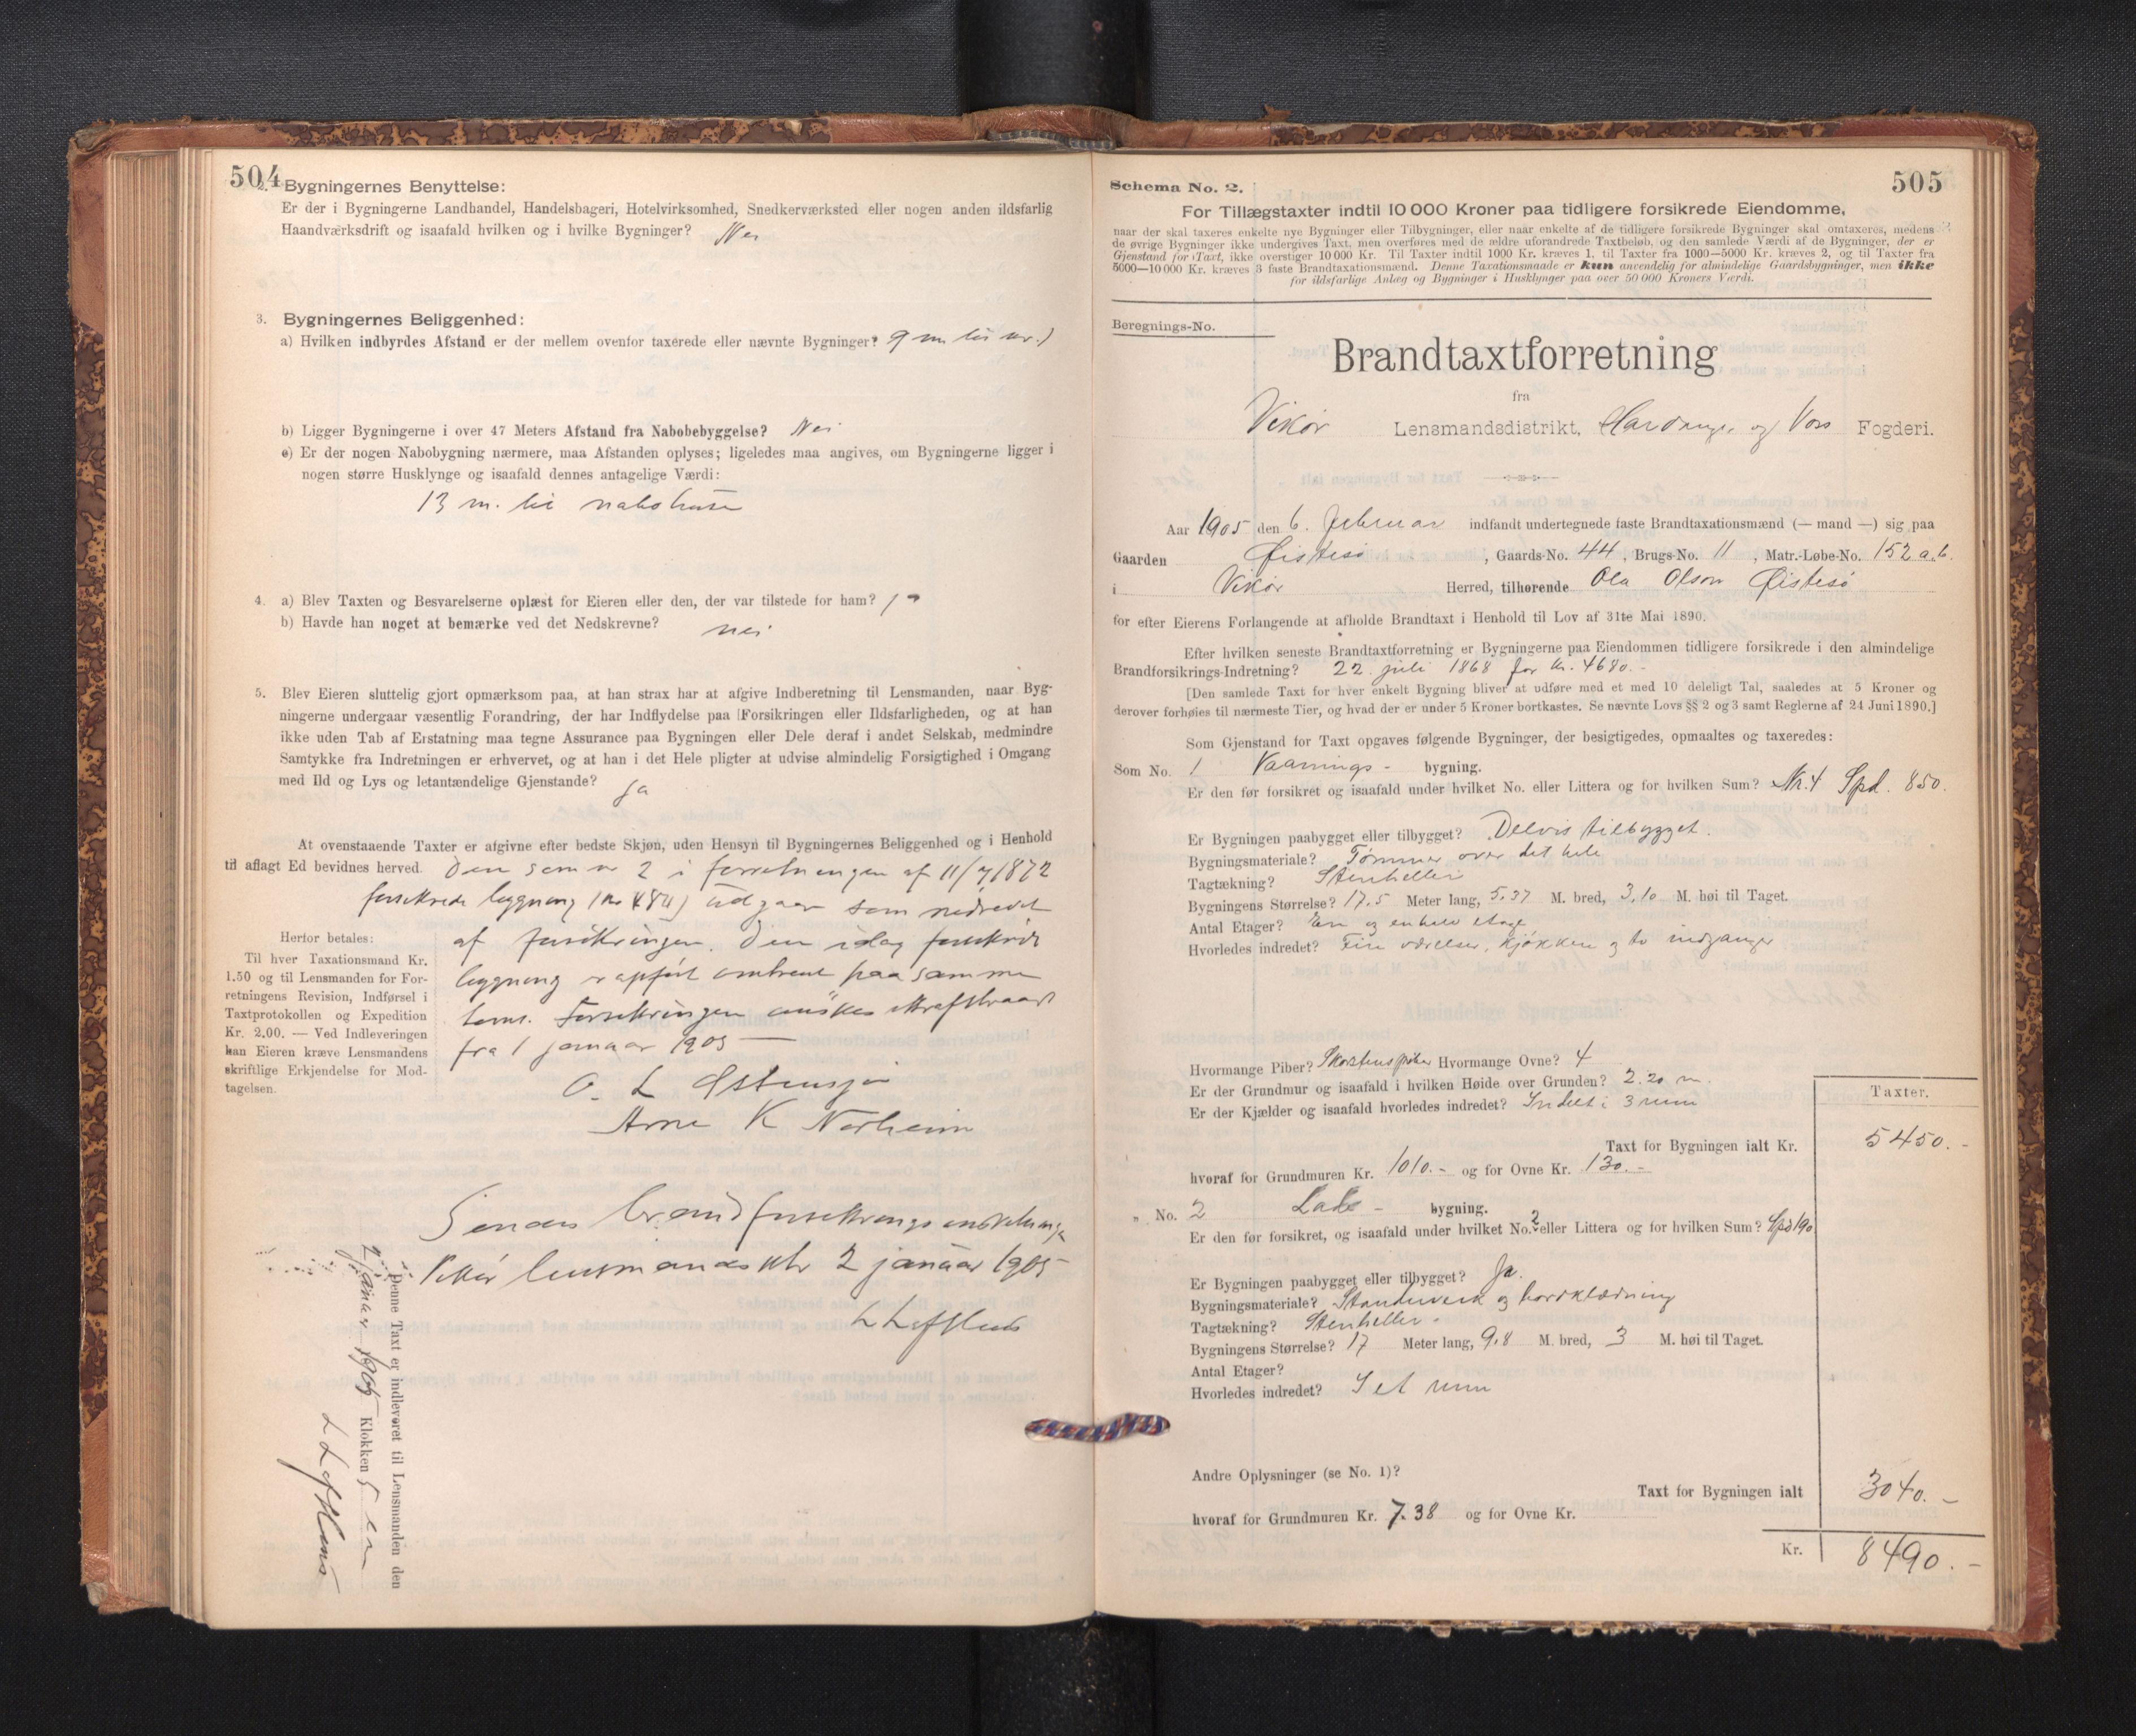 504
2. Bygningernes Benyttelse:
Er der i Bygningerne Landhandel, Handelsbageri, Hotelvirksomhed, Snedkerværksted eller nogen anden ildsfarlig
Haandværksdrift og isaafald hvilken og i hvilke Bygninger? Nei
3. Bygningernes Beliggenhed:
a) Hvilken indbyrdes Afstand er der mellem ovenfor taxerede eller nævnte Bygninger? 9 m. til nr. 1
b) Ligger Bygningerne i over 47 Meters Afstand fra Nabobebyggelse? Nei
c) Er der nogen Nabobygning nærmere, maa Afstanden oplyses; ligeledes maa angives, om Bygningerne ligger i
nogen større Husklynge og isaafald dennes antagelige Værdi:
13 m. til nabohuse
4. a) Blev Taxten og Besvarelserne oplæst for Eieren eller den, der var tilstede for ham? ja
b) Havde han noget at bemærke ved det Nedskrevne? nei
5. Blev Eieren sluttelig gjort opmærksom paa, at han strax har at afgive Indberetning til Lensmanden, naar Byg-
ningerne undergaar væsentlig Forandring, der har Indflydelse paa Forsikringen eller Ildsfarligheden, og at han
ikke uden Tab af Erstatning maa tegne Assurance paa Bygningen eller Dele deraf i andet Selskab, medmindre
Samtykke fra Indretningen er erhvervet, og at han i det Hele pligter at udvise almindelig Forsigtighed i Omgang
med Ild og Lys og letantændelige Gjenstande? Ja
At ovenstaaende Taxter er afgivne efter bedste Skjøn, uden Hensyn til Bygningernes Beliggenhed og i Henhold
til aflagt Ed bevidnes herved. Den som nr 2 i forretningen af 11/7 1872
forsikrede bygning (kr 480) udgaar som nedrevet
af forsikringen. Den idag forsikrede
bygning er opført omtrent paa samme
tomt. Forsikringen ønskes i kraftstraadt
fra 1 januar 1905
Herfor betales:
Til hver Taxationsmand Kr.
1.50 og til Lensmanden for For-
retningens Revision, Indførsel i
Taxtprotokollen og Expedition
Kr. 2.00. — Ved Indleveringen
kan Eieren kræve Lensmandens
skriftlige Erkjendelse for Mod-
tagelsen.
O. L Østensjø
Arne K Norheim
Sendes brandforsikringsindretningen
Vikør lensmandsktr 2 januar 1905
Denne Taxt er indleveret til Lensmanden den
2 januar 1905 Klokken 5 em
505
Schema No. 2.
For Tillægstaxter indtil 10 000 Kroner paa tidligere forsikrede Eiendomme,
naar der skal taxeres enkelte nye Bygninger eller Tilbygninger, eller naar enkelte af de tidligere forsikrede Bygninger skal omtaxeres, medens
de øvrige Bygninger ikke undergives Taxt, men overføres med de ældre uforandrede Taxtbeløb, og den samlede Værdi af de Bygninger, der er
Gjenstand for Taxt, ikke overstiger 10 000 Kr. Til Taxter indtil 1000 Kr. kræves 1, til Taxter fra 1000—5000 Kr. kræves 2, og til Taxter fra
5000—10 000 Kr. kræves 3 faste Brandtaxationsmænd. Denne Taxationsmaade er kun anvendelig for almindelige Gaardsbygninger, men ikke
for ildsfarlige Anlæg og Bygninger i Husklynger paa over 50 000 Kroners Værdi.
Beregnings-No.
Brandtaxtforretning
fra
Vikør Lensmandsdistrikt, Hardanger og Voss Fogderi.
Aar 1905 den 6. februar indfandt undertegnede faste Brandtaxationsmænd (— mand —) sig paa
Gaarden Øistesø, Gaards-No. 44, Brugs-No. 11, Matr.-Løbe-No. 152 a.b.
i Vikør Herred, tilhørende Ola Olson Øistesø
for efter Eierens Forlangende at afholde Brandtaxt i Henhold til Lov af 31te Mai 1890.
Efter hvilken seneste Brandtaxtforretning er Bygningerne paa Eiendommen tidligere forsikrede i den almindelige
Brandforsikrings-Indretning? 22 juli 1868 for kr. 4680.-
[Den samlede Taxt for hver enkelt Bygning bliver at udføre med et med 10 deleligt Tal, saaledes at 5 Kroner og
derover forhøies til nærmeste Tier, og hvad der er under 5 Kroner bortkastes. Se nævnte Lovs §§ 2 og 3 samt Reglerne af 24 Juni 1890.]
Som Gjenstand for Taxt opgaves følgende Bygninger, der besigtigedes, opmaaltes og taxeredes:
Som No. 1 Vaanings- bygning.
Er den før forsikret og isaafald under hvilket No. eller Littera og for hvilken Sum? Nr. 4 Spd. 850.
Er Bygningen paabygget eller tilbygget? Delvis tilbygget.
Bygningsmateriale? Tømmer over det hele
Tagtækning? Stenheller
Bygningens Størrelse? 17.5 Meter lang, 5.37 M. bred, 3.10 M. høi til Taget.
Antal Etager? En og enhalv etage
Hvorledes indredet? Fire værelser, kjøkken og to indgange
Hvormange Piber? Skorstenspiber Hvormange Ovne? 4
Er der Grundmur og isaafald i hvilken Høide over Grunden? 2.20 m.
Er der Kjælder og isaafald hvorledes indredet? Indelt i 3 rum
Taxter.
Taxt for Bygningen ialt Kr. 5450.-
hvoraf for Grundmuren Kr. 1010.- og for Ovne Kr. 130.-
" No. 2 Lade- bygning.
Er den før forsikret, og isaafald under hvilket No. 2 eller Littera og for hvilken Sum? Spd 190
Er Bygningen paabygget eller tilbygget? Ja.
Bygningsmateriale? Standverk og bordklædning
Tagtækning? Stenheller.
Bygningens Størrelse? 17 Meter lang, 9.8 M. bred, 3 M. høi til Taget.
Antal Etager?
Hvorledes indredet? I et rum
Andre Oplysninger (se No. 1)?
Taxt for Bygningen ialt 3040.-
hvoraf for Grundmuren Kr. 7.38 og for Ovne Kr.
Kr. 8490.-